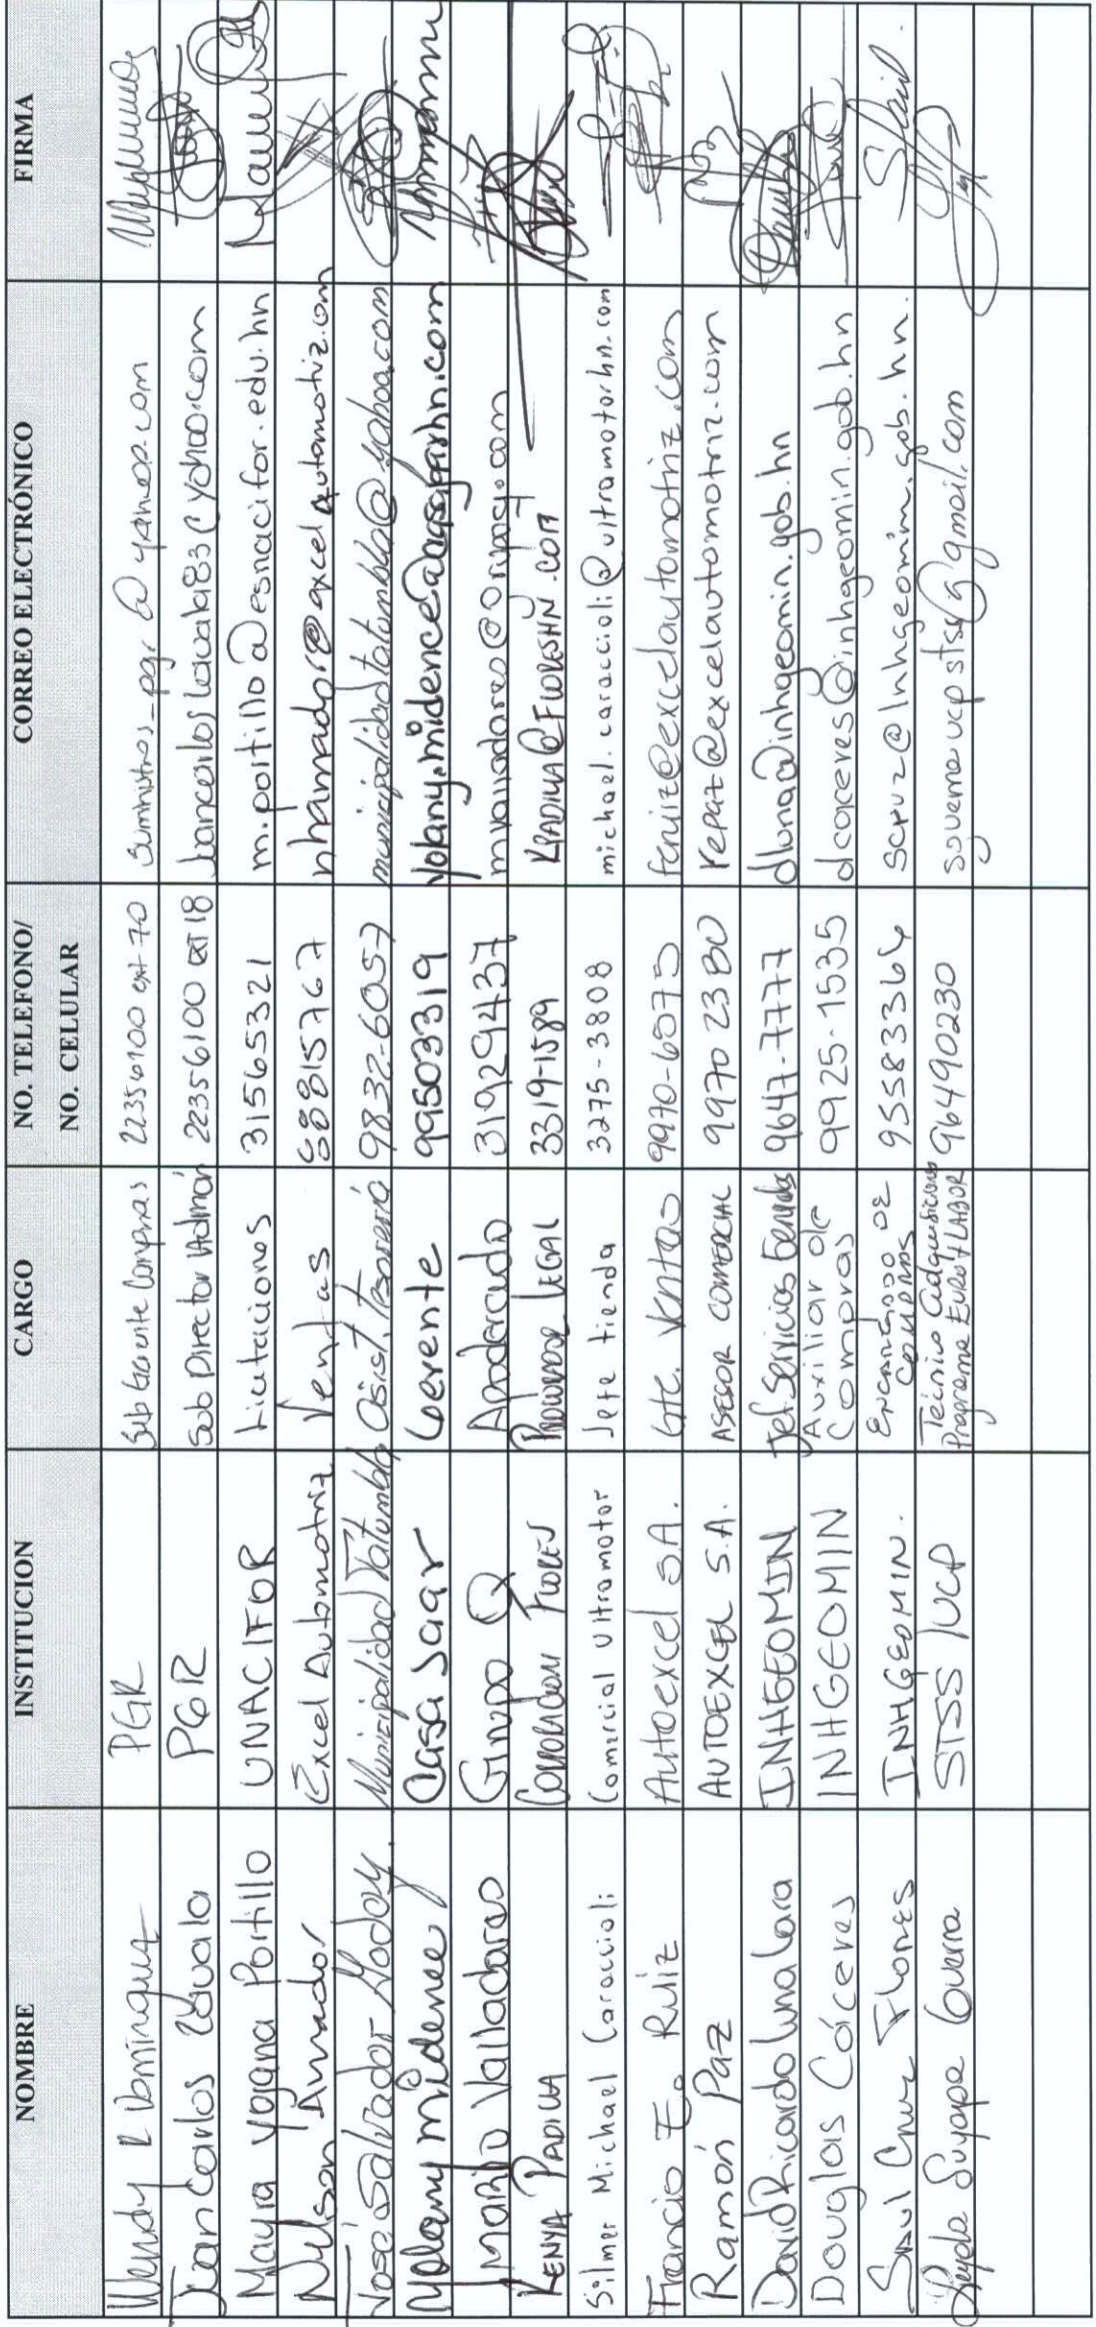 NOMBRE INSTITUCION CARGO NO. TELEFONO/ NO. CELULAR CORREO ELECTRÓNICO FIRMA
Wendy R Domínguez PGR Sub Gerente Compras 22356100 ext 70 suministros_pgr@yahoo.com
Juan Carlos PGR Sub Director Admón 22356100 EXT 18
Mayra Yojana Portillo UNACIFOR Licitaciones 31565321 m.portillo@esnacifor.edu.hn
Nelson Amador Excel Automotriz Ventas 88815767 nhamador@excelautomotriz.com
José Salvador Godoy. Municipalidad Tatumbla Asist. Tesorería 9832-6057 municipalidadtatumbla@yahoo.com
Yolany Midence Casa Jaar Gerente 99503319 yolany.midence@casajaarhn.com
Mario Valladares Grupo Q Apoderado 31929437 mvalladares@grupoq.com
KENYA PADILLA CORPORACION FLORES PROCURADOR LEGAL 3319-1589 KPADILLA@FLORESHN.COM
Silmer Michael Caraccioli Comercial Ultramotor Jefe tienda 3275-3808 michael.caraccioli@ultramotorhn.com
Francio E. Ruiz Autoexcel S.A. Gte. Ventas 9970-6075 feruiz@excelautomotriz.com
Ramón Paz AUTOEXCEL S.A. ASESOR COMERCIAL 9970 2380 repaz@excelautomotriz.com
David Ricardo Luna Lara INHGEOMIN Jef. Servicios Generales 9647-7777 dluna@inhgeomin.gob.hn
Douglas Cáceres INHGEOMIN Auxiliar de Compras 9925-1535 dcaceres@inhgeomin.gob.hn
Saul Cruz Flores INHGEOMIN. Encargado de Compras 95583364 scruz@inhgeomin.gob.hn.
Suyapa Guerra STSS/UCP Técnico Adquisiciones Programa EURO+LABOR 96490230 sguerraucpstss@gmail.com